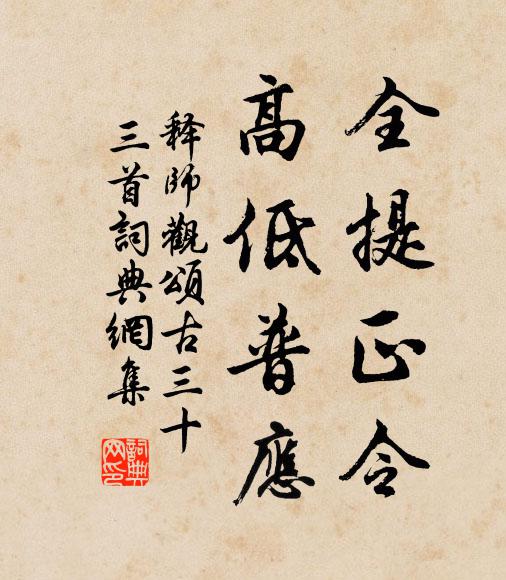 全提正令
高低普應
释師觀頌古三十
三首詞典網集
詞典
网印